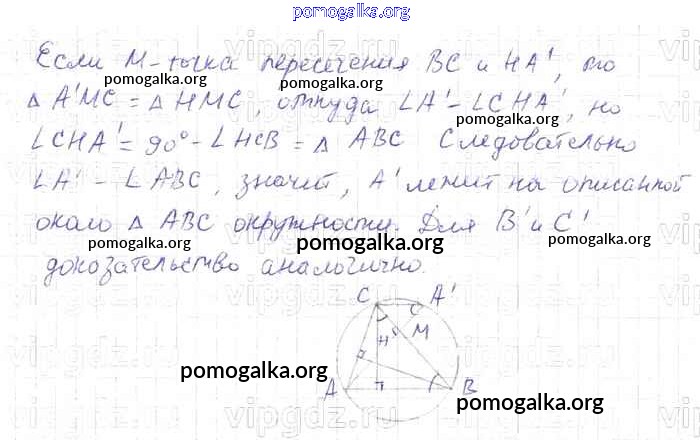 pomogalka.org
Если M - точка пересечения BC и HA', то
pomogalka.org
pomogalka.org
△ A'MC = △ HMC, откуда ∠A' - ∠CHA', но
pomogalka.org
∠CHA' = 90° - ∠HCB = △ ABC Следовательно
pomogalka.org
∠A' - ∠ABC, значит, A' лежит на описанной
около △ ABC окружности. Для B' и C'
pomogalka.org
pomogalka.org
pomogalka.org
доказательство аналогично.
C A'
M
H
pomogalka.org
A B
pomogalka.org
vipgdz.ru